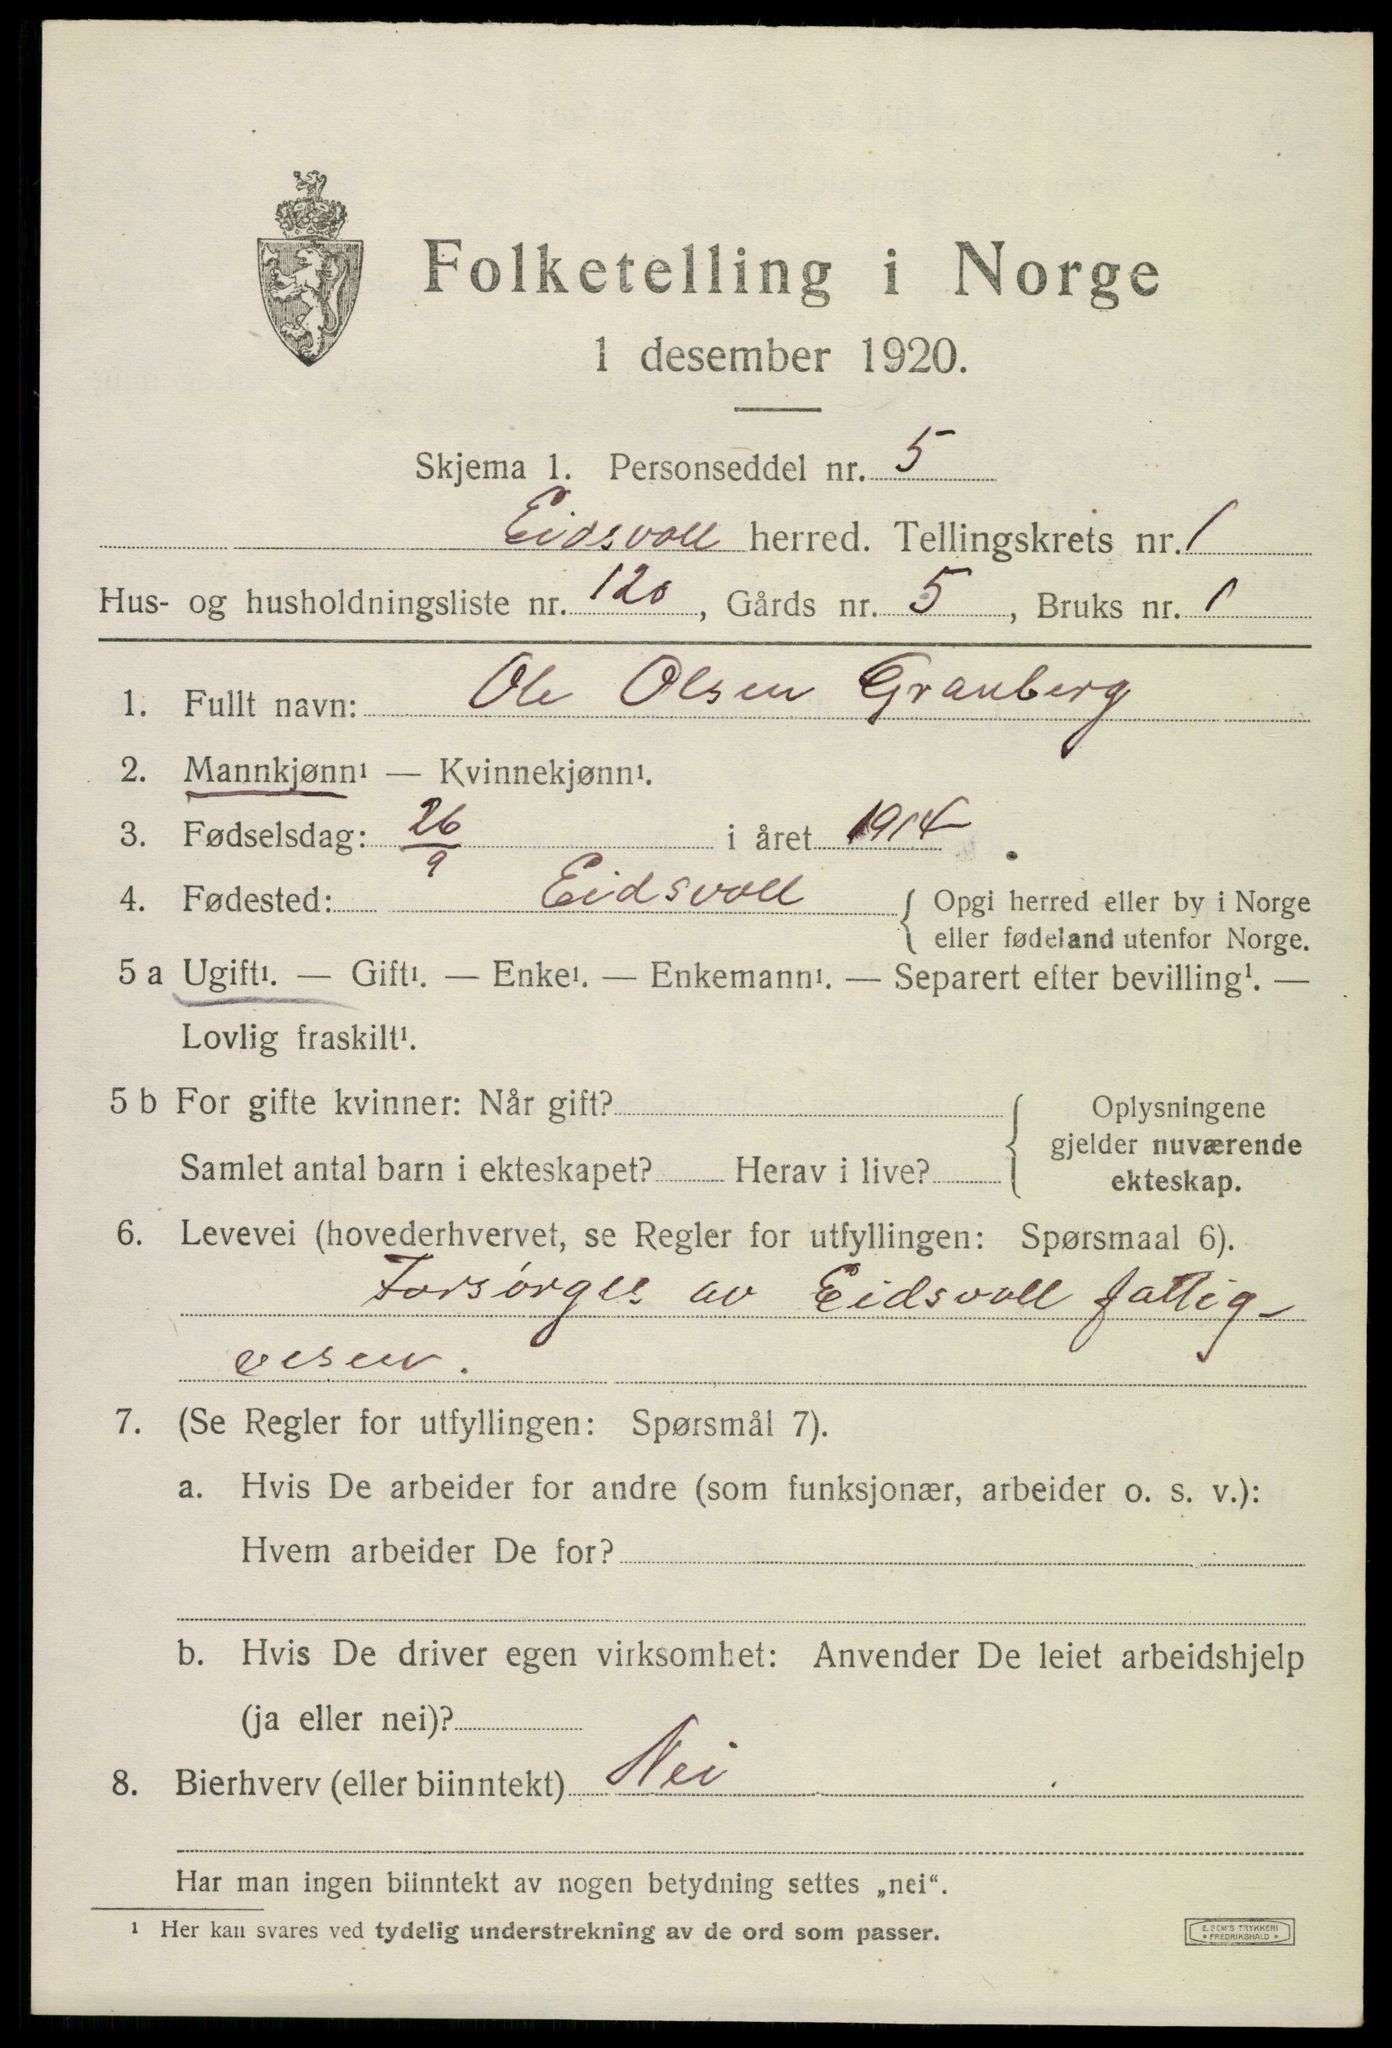 Folketelling i Norge
1 desember 1920.
Skjema 1. Personseddel nr. 5
Eidsvoll herred. Tellingskrets nr. 1
Hus- og husholdningsliste nr. 120, Gårds nr. 5, Bruks nr. 1
1. Fullt navn: Ole Olsen Granberg
2. Mannkjønn¹ — Kvinnekjønn¹.
3. Fødselsdag: 26/9 i året 1914
4. Fødested: Eidsvoll { Opgi herred eller by i Norge
eller fødeland utenfor Norge.
5 a Ugift¹. — Gift¹. — Enke¹. — Enkemann¹. — Separert efter bevilling¹. —
Lovlig fraskilt¹.
5 b For gifte kvinner: Når gift?
Samlet antal barn i ekteskapet? Herav i live?
{ Oplysningene
gjelder nuværende
ekteskap.
6. Levevei (hovederhvervet, se Regler for utfyllingen: Spørsmaal 6).
Forsørges av Eidsvoll fattig-
vesen.
7. (Se Regler for utfyllingen: Spørsmål 7).
a. Hvis De arbeider for andre (som funksjonær, arbeider o. s. v.):
Hvem arbeider De for?
b. Hvis De driver egen virksomhet: Anvender De leiet arbeidshjelp
(ja eller nei)?
8. Bierhverv (eller biinntekt) Nei
Har man ingen biinntekt av nogen betydning settes „nei“.
¹ Her kan svares ved tydelig understrekning av de ord som passer.
E. SEM'S TRYKKERI
* FREDRIKSHALD *